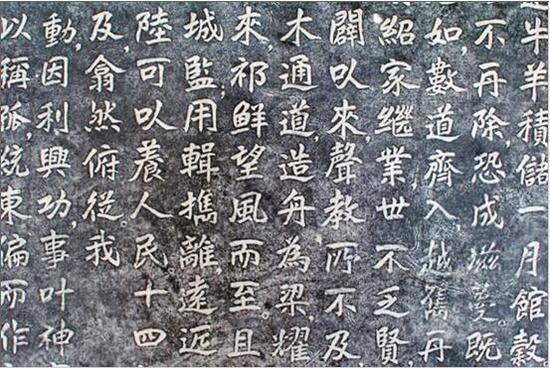 牛羊積儲一月館穀。
不再除,恐成滋蔓。既
如,數道齊入,越巂再
紹家繼業,世不乏賢,
闢以來,聲教所不及,
木通道,造舟為梁,耀
來,祁鮮望風而至。且
城監,用輯攜離,遠近
陸可以養人民十四
及,翕然俯從。我
動,因利興功,事叶神
以稱孤,統東偏而作